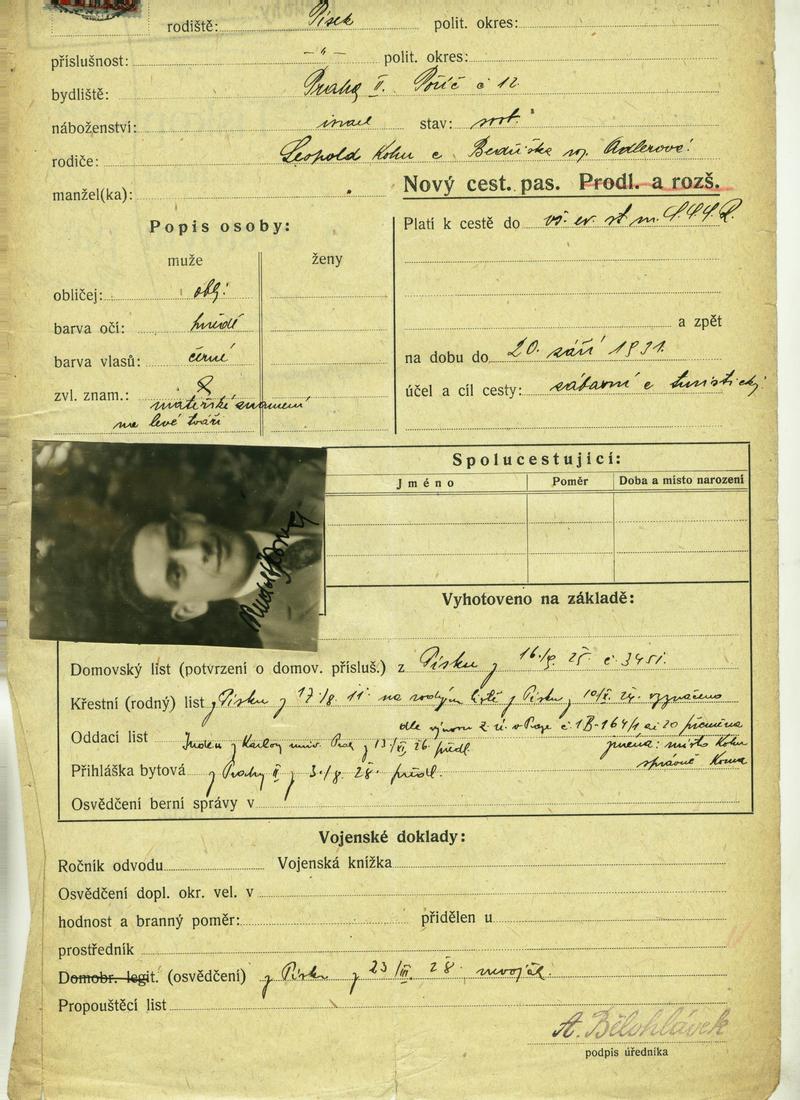 rodiště: Písek polit. okres:
příslušnost: – " – polit. okres:
bydliště: Praha II. Poříč č 12
náboženství: israel stav: svob.
rodiče: Leopold Kohn a Bedřiška roz. Adlerová
manžel(ka):
Nový cest. pas. Prodl. a rozš.
Popis osoby:
muže ženy
obličej: obl:
barva očí: hnědé
barva vlasů: černé
zvl. znam.:
mateřské znamení
na levé tváři
Platí k cestě do vš. ev. st. m. S.S.S.R.
a zpět
na dobu do 20. září 1931.
účel a cíl cesty: zábavní a turistický
Spolucestující:
Jméno Poměr Doba a místo narození
Vyhotoveno na základě:
Domovský list (potvrzení o domov. přísluš.) z Písku z 25. č. 3451.
Křestní (rodný) list z Písku z na rodném listě z Písku z vyznačeno
dle výnosu z. ú. v Praze přeměna
Oddací list Index z Karlovy univ. předl. jména: místo Kohn
správně Koma
Přihláška bytová z Prahy II z 28. předl.
Osvědčení berní správy v
Vojenské doklady:
Ročník odvodu Vojenská knížka
Osvědčení dopl. okr. vel. v
hodnost a branný poměr: přidělen u
prostředník
Domobr. legit. (osvědčení) z Písku z 23/III. 28. nevoják.
Propouštěcí list
A. Bělohlávek
podpis úředníka